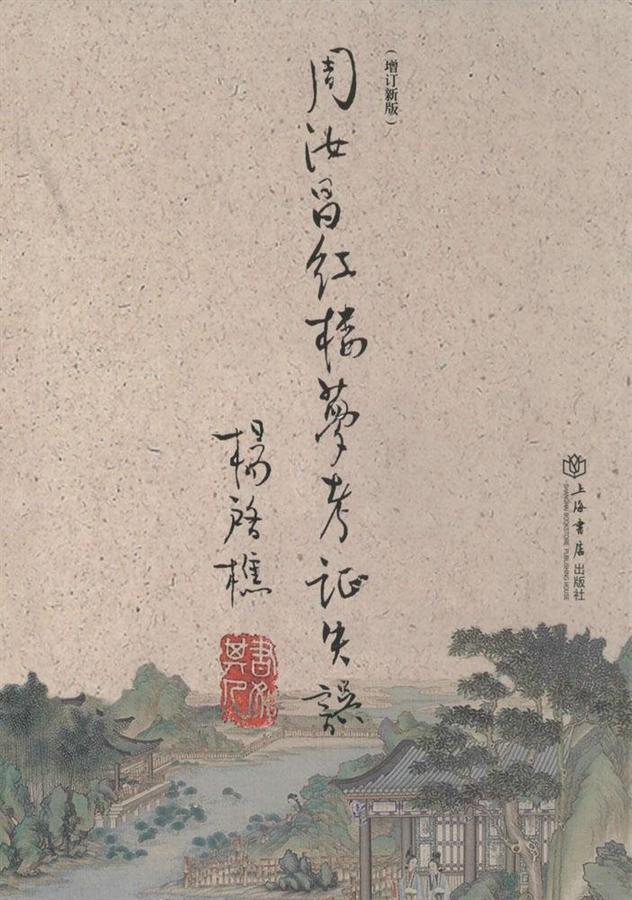 （增订新版）
周汝昌红楼夢考证失誤
楊啓樵
書如其人
上海書店 出版社
SHANGHAI BOOKSTORE PUBLISHING HOUSE